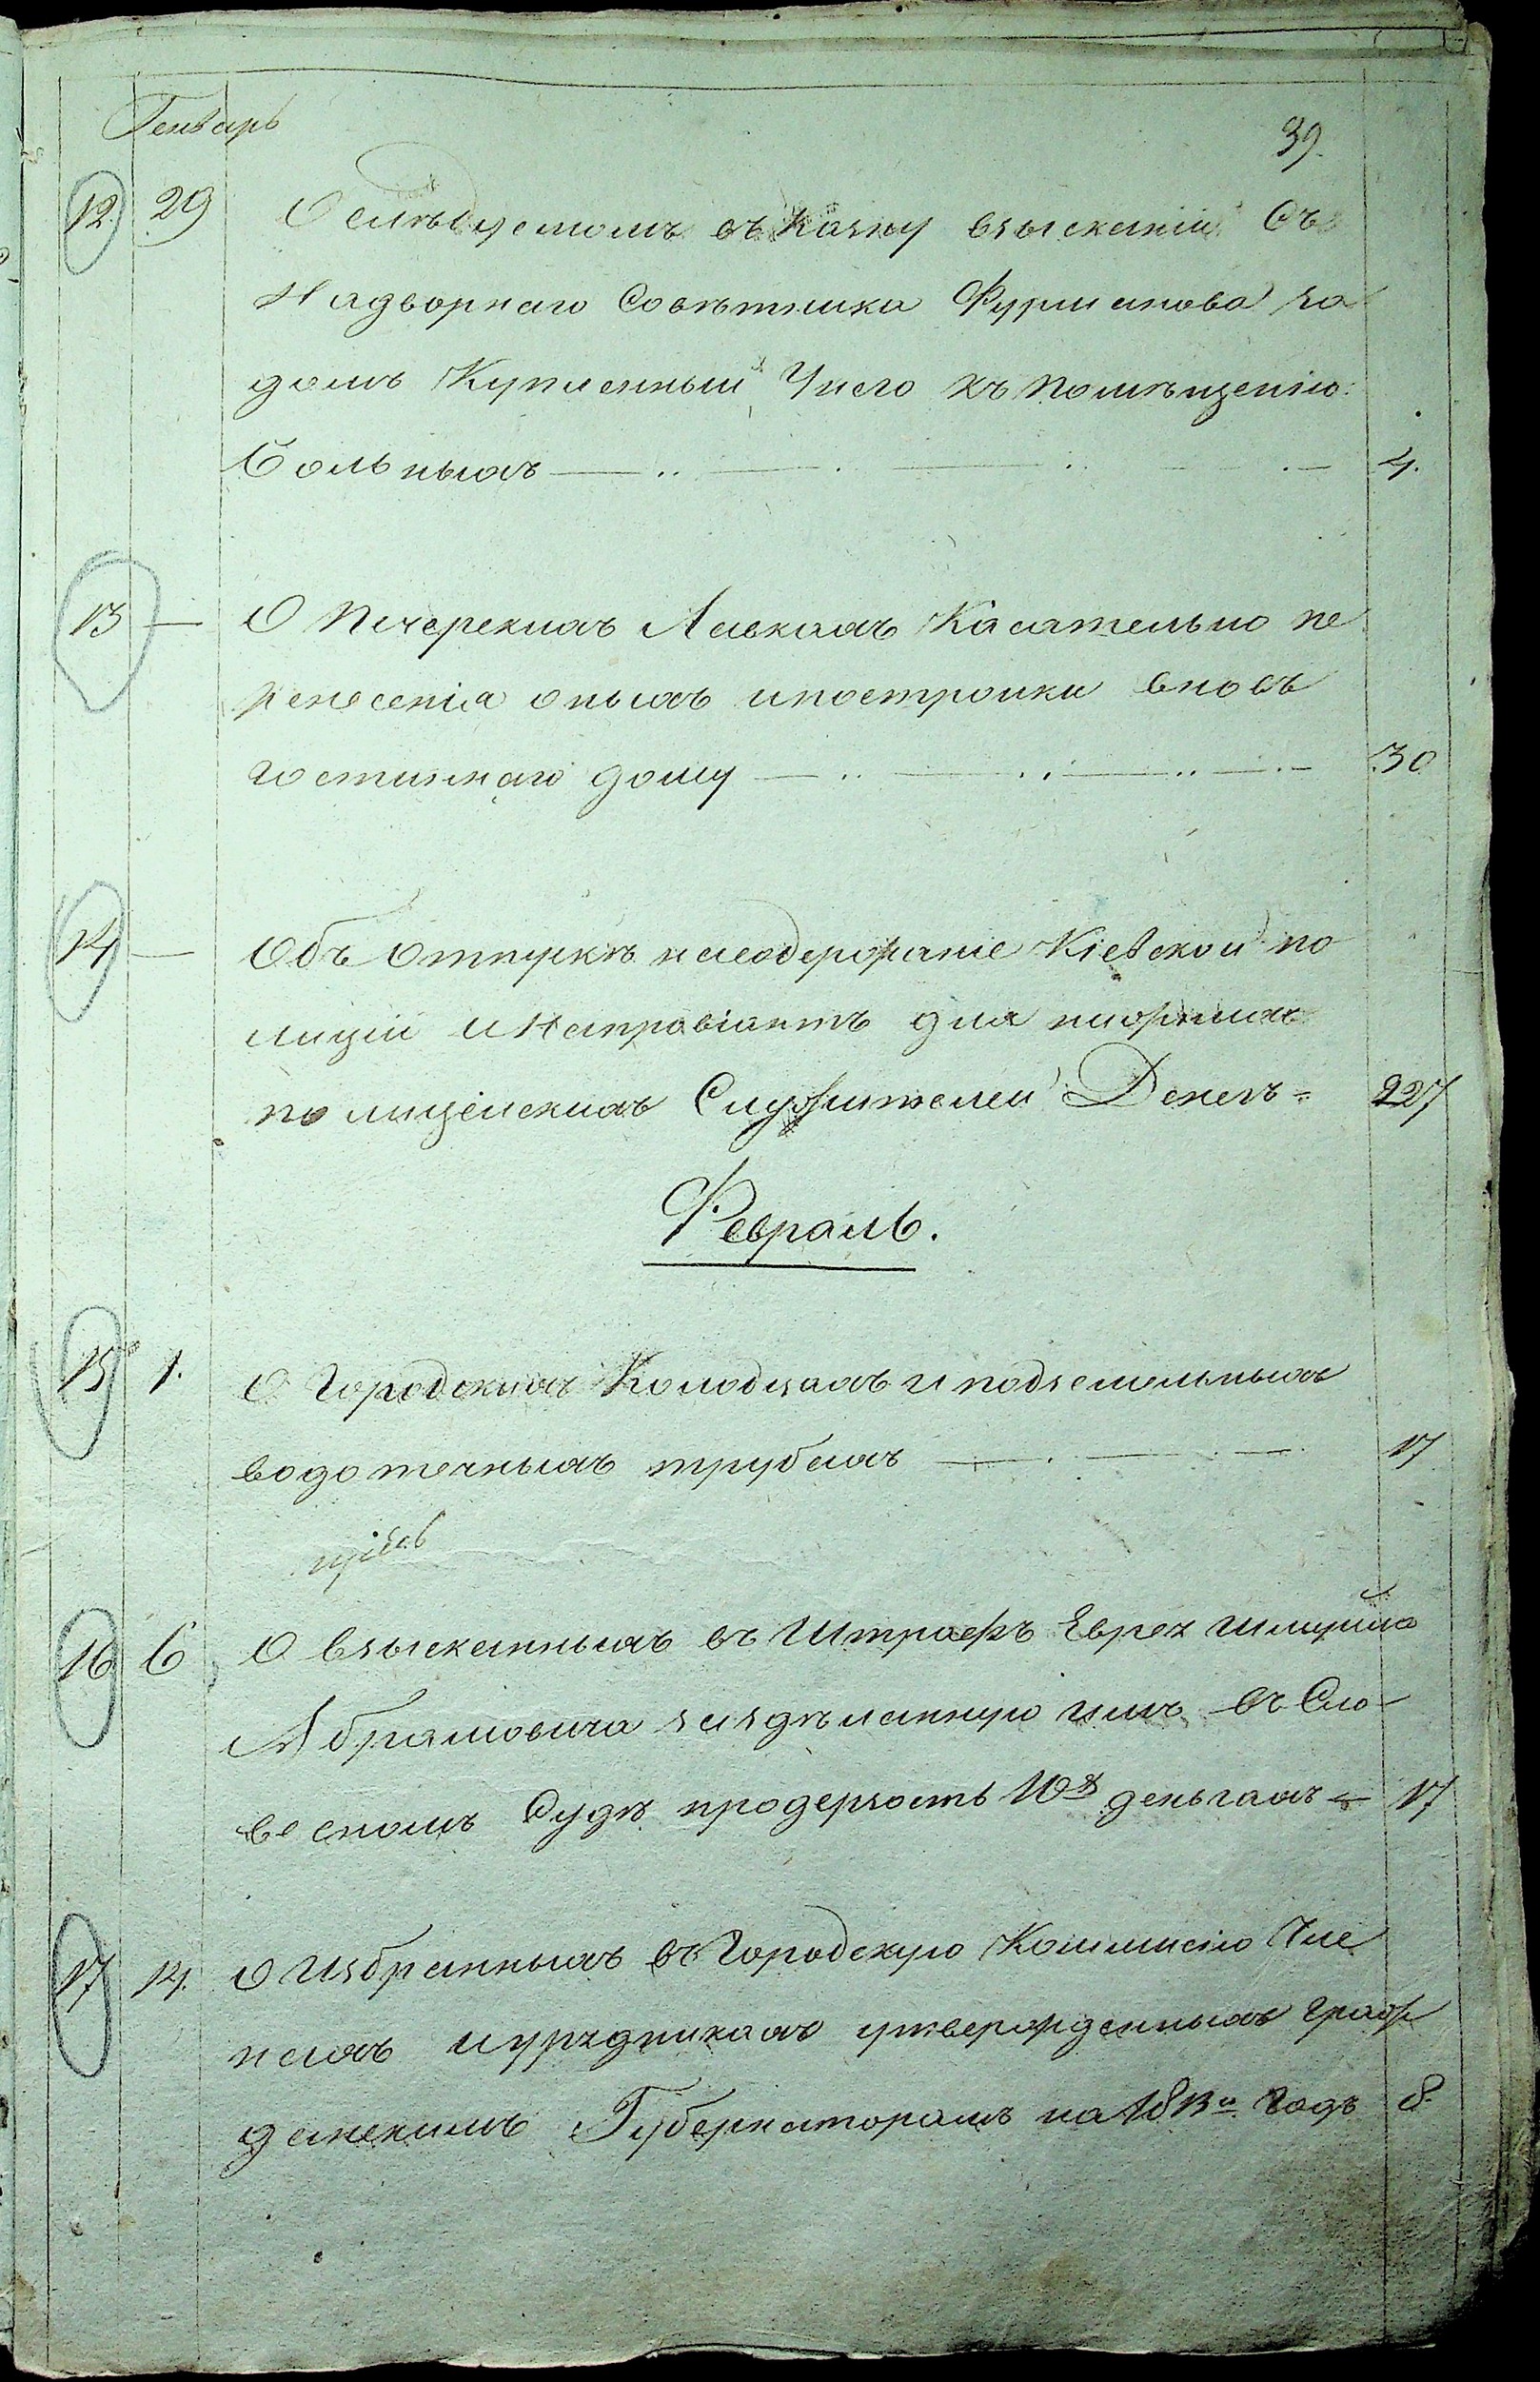 Генварь
39.
12. 29 О следуемомъ въ Казну взысканіи Съ
Надворнаго Советника Фурманова за
домъ Купленный Унего къ помѣщенію
Больныхъ — 4.
13 — О Печерскихъ Лавкахъ Касательно пе
ренесенія оныхъ ипостройки вновь
гостиннаго дому — 30
14 — Объ Отпускѣ насодержаніе Кіевской по
лиціи инапровіантъ для нижнихъ
полицейскихъ Служителей Денегъ = 227
Февраль.
15 1. О Городскихъ Колодцахъ и подземельныхъ
водотечныхъ трубахъ — 17
16 6 О взысканныхъ въ Штрафъ Еврея
Абрамовича засдѣланную имъ въ Сло-
весномъ Судѣ продерзость 10 деньгахъ — 17
17 14. О Избранныхъ въ Городскую Коммисію Чле
нахъ иурядникахъ утвержденныхъ Граж
данскимъ Губернаторомъ на 1813й Годъ 8.